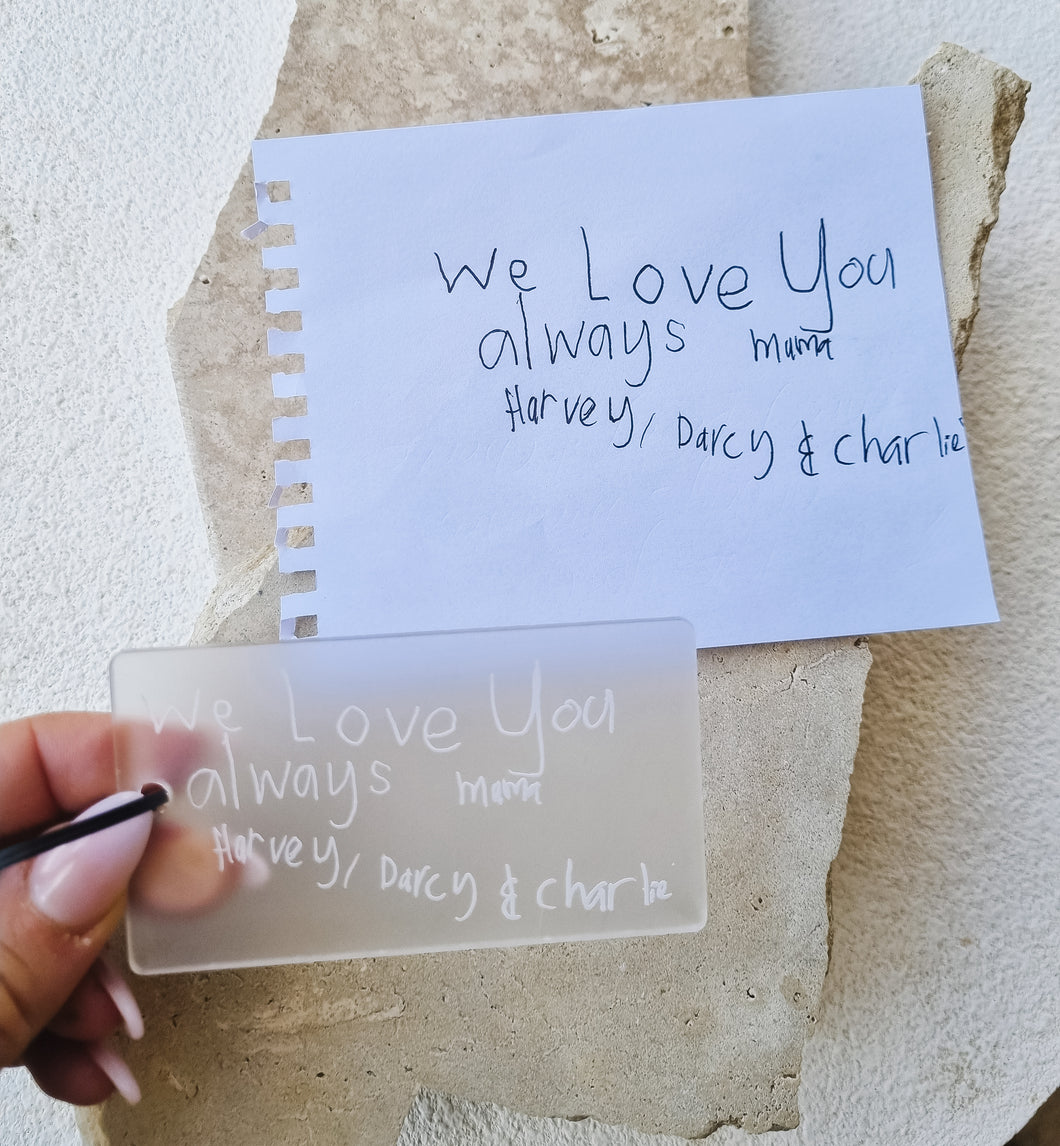 We Love You
always mama
Harvey, Darcy & Charlie
We Love You
always mama
Harvey, Darcy & Charlie